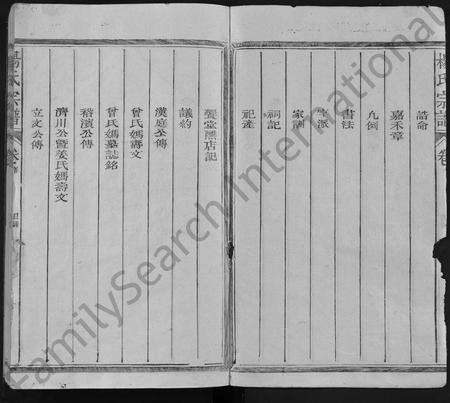 楊氏宗譜
誥命
嘉禾章
凡例
書法
派
家
祠記
祀產
議約
漢庭公傳
曾氏媽壽文
曾氏媽墓誌銘
濱公傳
濟川公暨姜氏媽壽文
立文公傳
楊氏宗譜
FamilySearch International